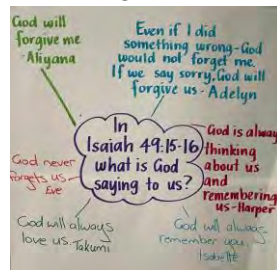 God will
forgive me
-Aliyana
Even if I did
something wrong-God
would not forget me.
If we say sorry, God will
forgive us - Adelyn
In
Isaiah 49:15-16
what is God
saying to us?
God is always
thinking
about us
and
remembering
us-Harper
God never
forgets us-
Eve
God will always
love us-Takumi
God will always
remember you
Isabelle